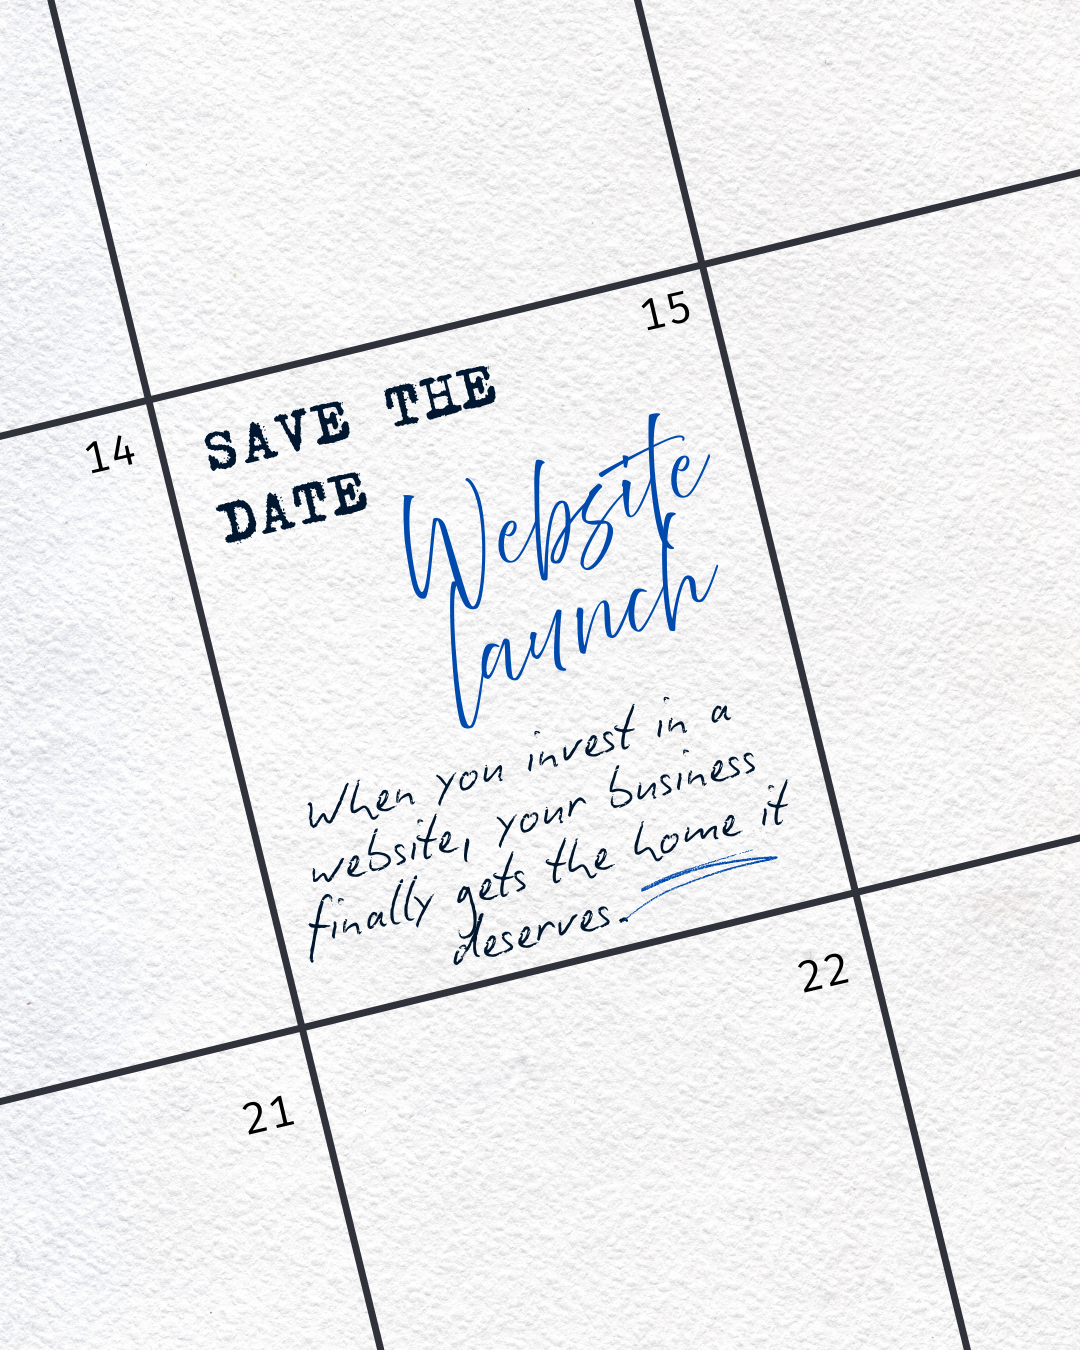 15
14
SAVE THE
DATE
Website
launch
When you invest in a
website, your business
finally gets the home it
deserves.
22
21